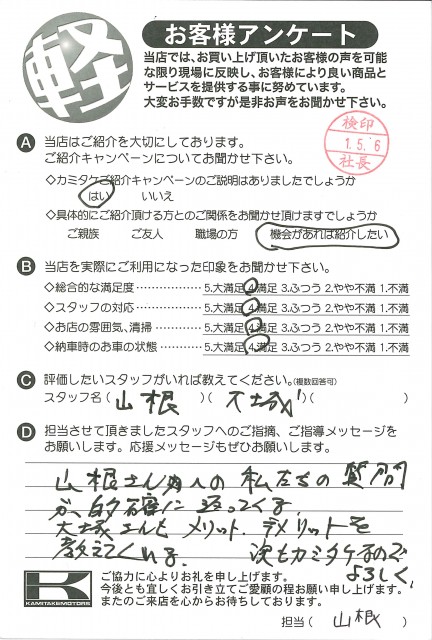 軽
お客様アンケート
当店では、お買い上げ頂いたお客様の声を可能
な限り現場に反映し、お客様により良い商品と
サービスを提供する事に努めています。
大変お手数ですが是非お声をお聞かせ下さい。
検印
1.5.6
社長
A 当店はご紹介を大切にしております。
ご紹介キャンペーンについてお聞かせ下さい。
◇カミタケご紹介キャンペーンのご説明はありましたでしょうか
はい いいえ
◇具体的にご紹介頂ける方とのご関係をお聞かせ頂けますでしょうか
ご親族 ご友人 職場の方 機会があれば紹介したい
B 当店を実際にご利用になった印象をお聞かせ下さい。
◇総合的な満足度………… 5.大満足 4.満足 3.ふつう 2.やや不満 1.不満
◇スタッフの対応………… 5.大満足 4.満足 3.ふつう 2.やや不満 1.不満
◇お店の雰囲気、清掃…… 5.大満足 4.満足 3.ふつう 2.やや不満 1.不満
◇納車時のお車の状態…… 5.大満足 4.満足 3.ふつう 2.やや不満 1.不満
C 評価したいスタッフがいれば教えてください。(複数回答可)
スタッフ名 ( 山根 )( 大城 )( )
D 担当させて頂きましたスタッフへのご指摘、ご指導メッセージを
お願いします。応援メッセージもぜひお願いします。
山根さん 私たちの質問
が、的確に 返ってくる
大城さんも メリット、デメリットを
教えてくれる 次もカミタケなので
よろしく
K
KAMITAKEMOTORS
ご協力に心よりお礼を申し上げます。
今後とも宜しくお引き立てご愛顧の程お願い申し上げます。
またのご来店を心からお待ちしております。
担当 ( 山根 )